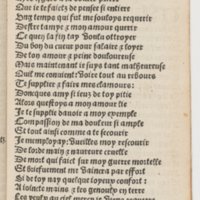 Que ie te faictz de penser si entiere
Long temps qui fut me soulloys requerir
De estre ta mye z mon amour querre
Ce que la fin tay voulu octroyer
Du bon du cueur pour salaire z loyer
De ton amour z peine douloureuse
Mais maintenant ie suys tant malheureuse
Que me conuient: Voire tout au rebours
Te supplier z faire mes clamours:
Doncques amy si ieuz de toy pitie
Alors questoys a mon amour lie
Je te supplie donne moy exemple
Compassion de ma douleur si ample
Et tout ainsi comme a te secourir
Je memployay: Vueilles moy recourir
De lorde main z nauteure cruelle
De mort qui faict sur moy guerre mortelle
Et briefuement me Vaincra par effort
Si de toy nay quelque ioyeux confort
A ioincte mains z les genoulx en terre